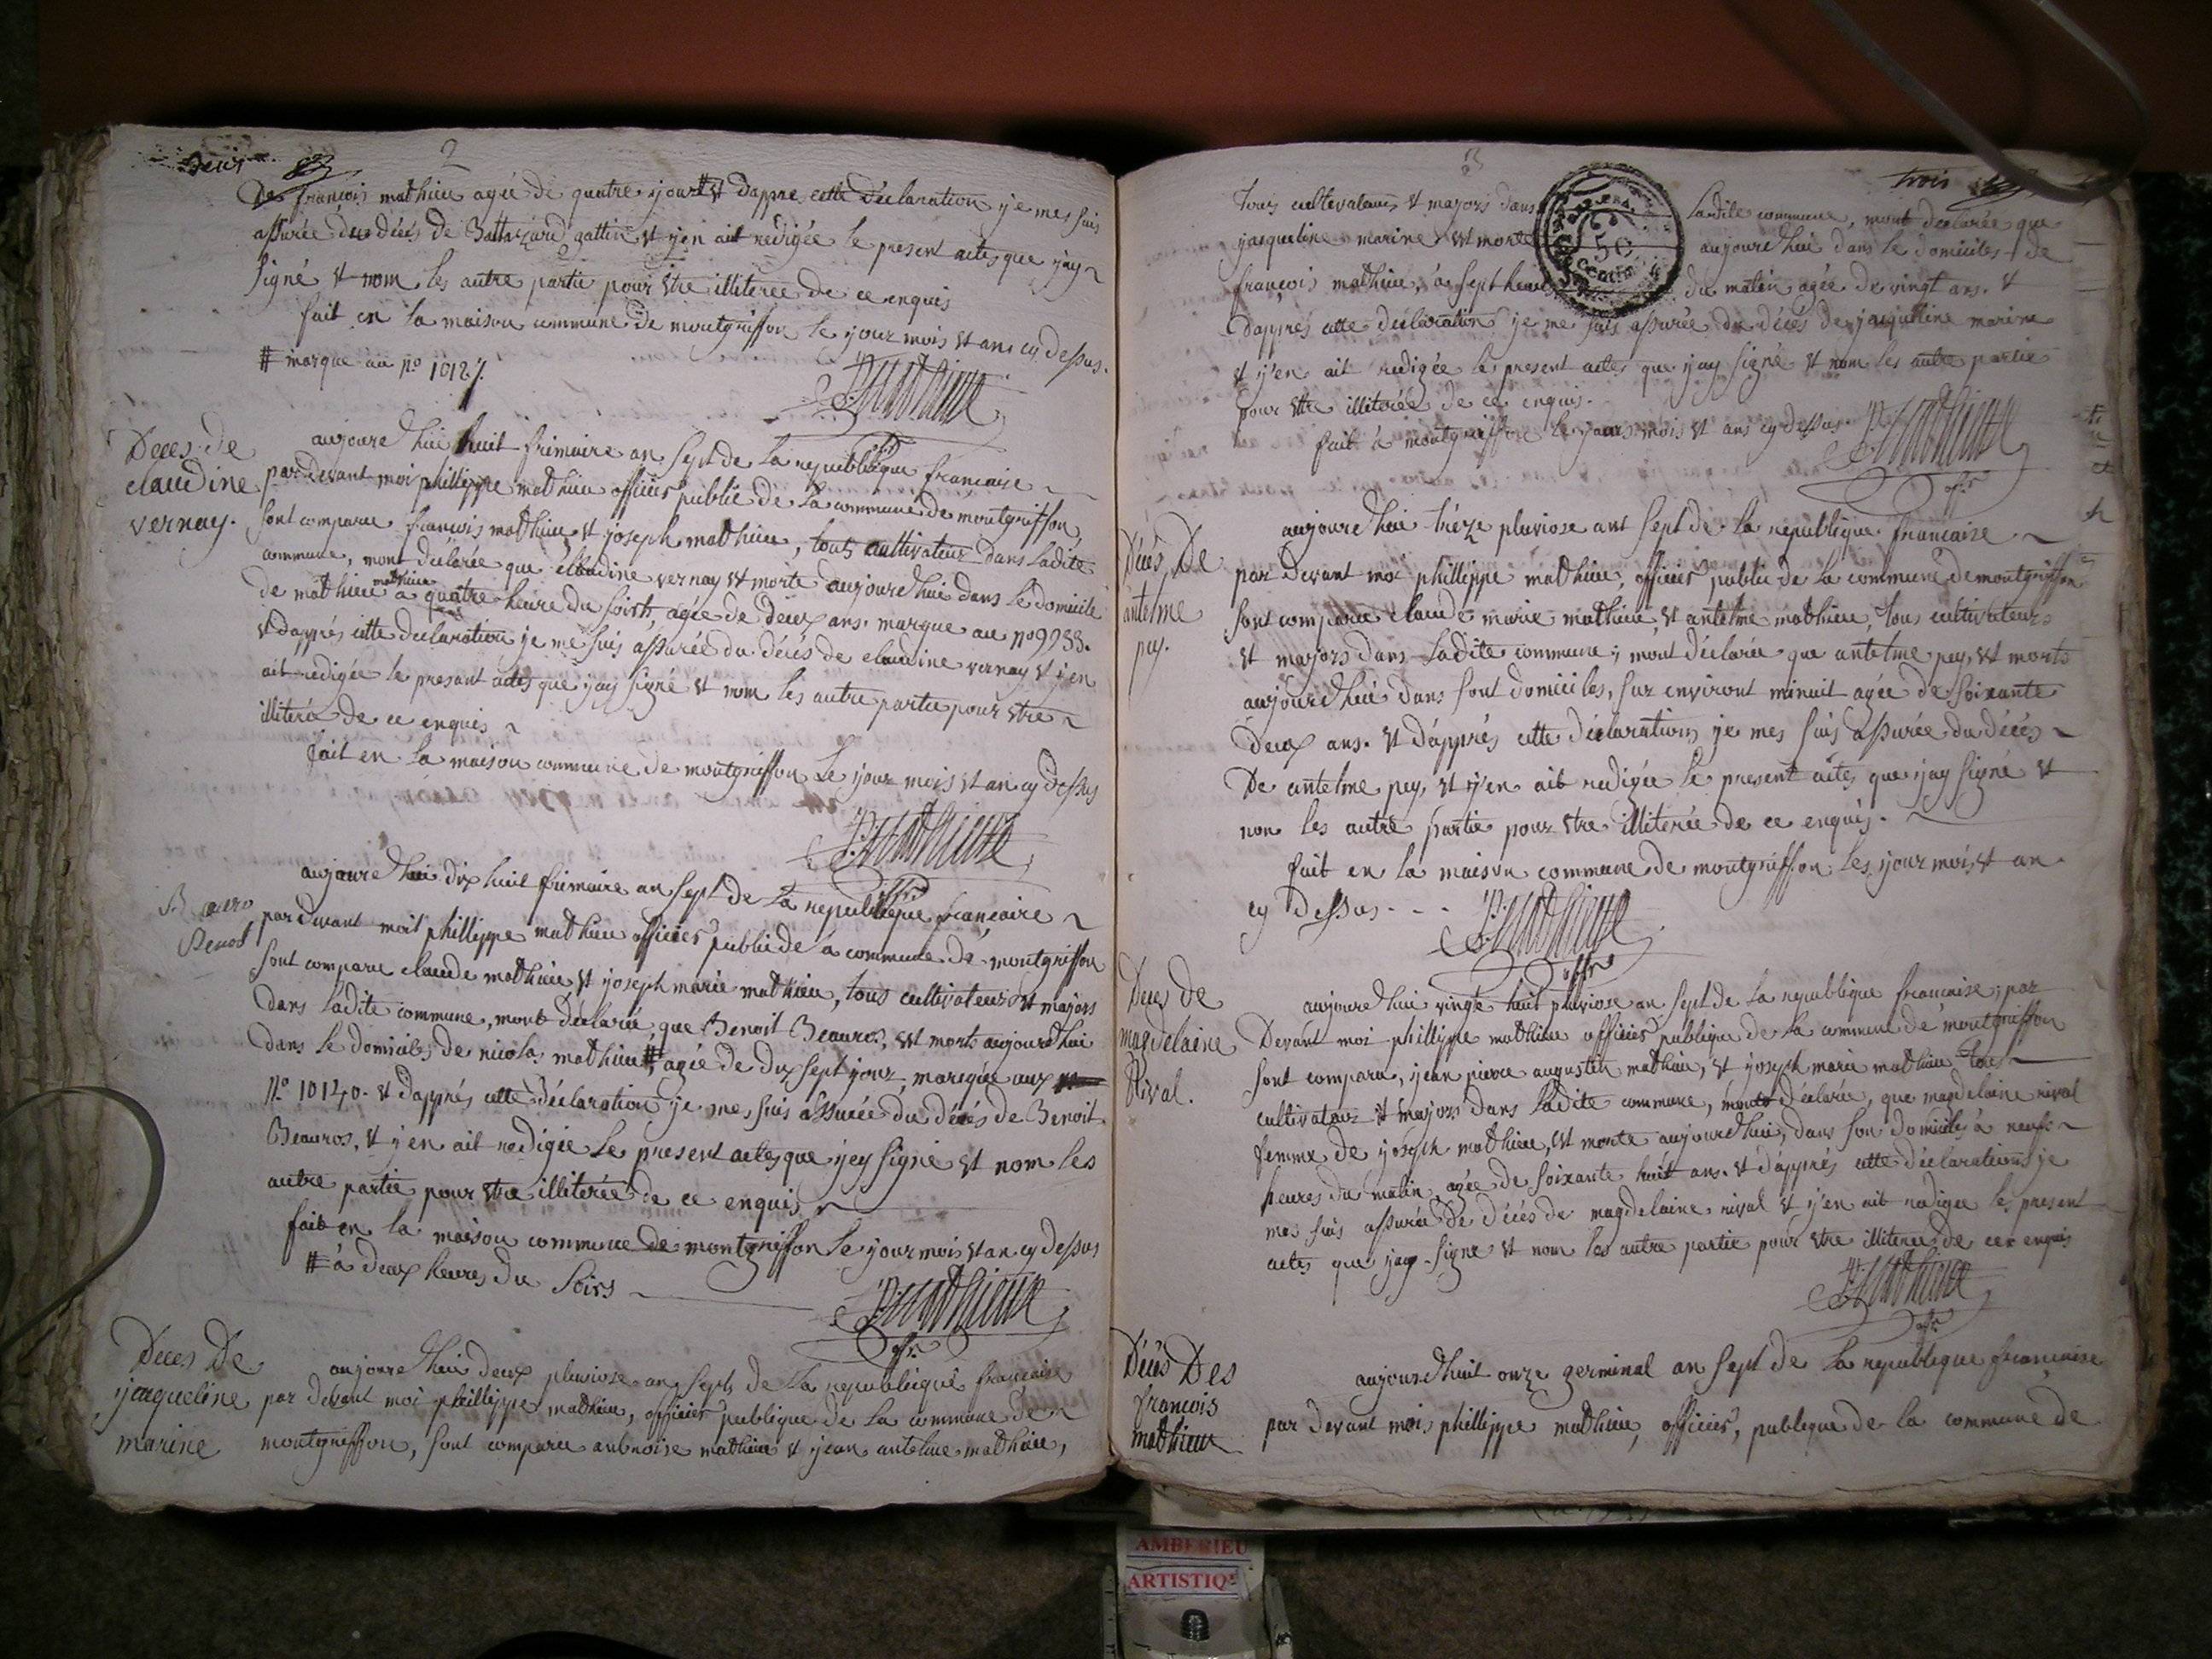 Deux
2
De françois mathieu agée de quatre yours # et dappres cette déclaration ye mes suis
assurée du décés de Baltazard gattin et y'en ait redigée le present actes que y'ay
signé et nom les autre partie pour etre illiterée de ce enquis
fait en la maison commune de montgriffon le your mois et ans cy dessus.
# marque au no 10127.
PMathieux
offr
Deces de
claudine
vernay.
aujourd'hui huit frimaire an sept de la republique francaise
par devant moi phillippe mathieu officier public de la commune de montgriffon
sont comparu francois mathieu et yoseph mathieu, touts cultivateur dans ladite
commune, mont déclarée que claudine vernay et morte aujourdhui dans le domicile
de mathieu mathieu a quatre heure du soirs, agée de deux ans. marque au no 9953.
et dapprés cette declaration je me suis assurée du décés de claudine vernay et y'en
ait redigée le presant actes que yay signé et nom les autre partie pour etre
illiterée de ce enquis
fait en la maison commune de montgriffon le your mois et an cy dessus
PMathieux
offr
Benoit
aujourdhui dix huit frimaire an sept de la republique francaise
par devant moit phillippe mathieu officier public de a commune de montgriffon
sont comparu claude mathieu et yoseph marie mathieu, tous cultivateurs et majors
dans ladite commune, mont déclarée que Benoit Beauros, et morts aujourdhui
dans le domiciles de nicolas mathieu # agée de dix sept yours marquée aux
No 10140. et dapprés cette déclaration ye mes suis assurée du décés de Benoit
Beauros, et y'en ait redigée le present actes que yey signé et nom les
autre partie pour etre illiterée de ce enquis
fait en la maison commune de montgriffon le your mois et an cy dessus
# à deux heures du soirs
PMathieux
offr
Deces De
yaqueline
marine
aujourdhui deux pluviose an sept de la republique francaise
par devant moi phillippe mathieu, officier publique de la commune de
montgriffon, sont comparu anbroise mathieu et yean antelme mathieu,
3
trois
tous cultivateurs et majors dans ladite commune, mont declarée que
yaqueline marine et morte aujourdhui dans le domiciles de
françois mathieu, à sept heures du matin agée de vingt ans. et
dapprés cette déclaration ye me suis assurée du décés de yaqueline marine
et y'en ait redigée le present actes que yay signé et nom les autre partie
pour etre illiterée de ce enquis.
fait à montgriffon le yours mois et ans cy dessus
PMathieux
offr
50
Décés De
antelme
pey.
aujourdhui trèze pluviose ant sept de la republique francaise
par devant moi phillippe mathieu, officier public de la commune de montgriffon
sont comparu claude marie mathieu, et antelme mathieu, tous cultivateurs
et majors dans ladite commune, mont déclarée que antelme pey, et morts
aujourdhui dans sont domiciles, sur environt minuit agée de soixante
deux ans. et dapprés cette déclarations ye mes suis assurée du décés
De antelme pey, et y'en ait redigée le present actes que yay signé et
non les autre partie pour etre illiterée de ce enquis.
fait en la maison commune de montgriffon les your mois et an
cy dessus
PMathieux
offr
Deces de
magdelaine
Rival.
aujourdhui vingt huit pluviose an sept de la republique francaise, par
Devant moi phillippe mathieu officier publique de la commune de montgriffon
sont comparu, yean pierre augustin mathieu, et yoseph marie mathieu tous
cultivateur et majors dans ladite commune, mont déclarée, que magdelaine rival
femme de yoseph mathieu, et morte aujourdhui, dans son domiciles à neuf
heures du matin, agée de soixante huit ans. et dapprés cette déclarations ye
mes suis assurée de décés de magdelaine rival et y'en ait redigée les present
actes que yay signé et nom les autre partie pour etre illiterée de ce enquis
PMathieux
offr
Décés Des
françois
mathieux
aujourdhuit onze germinal an sept de la republique francaise
par devant mois phillippe mathieu, officier, publique de la commune de
AMBERIEU
ARTISTIQUE